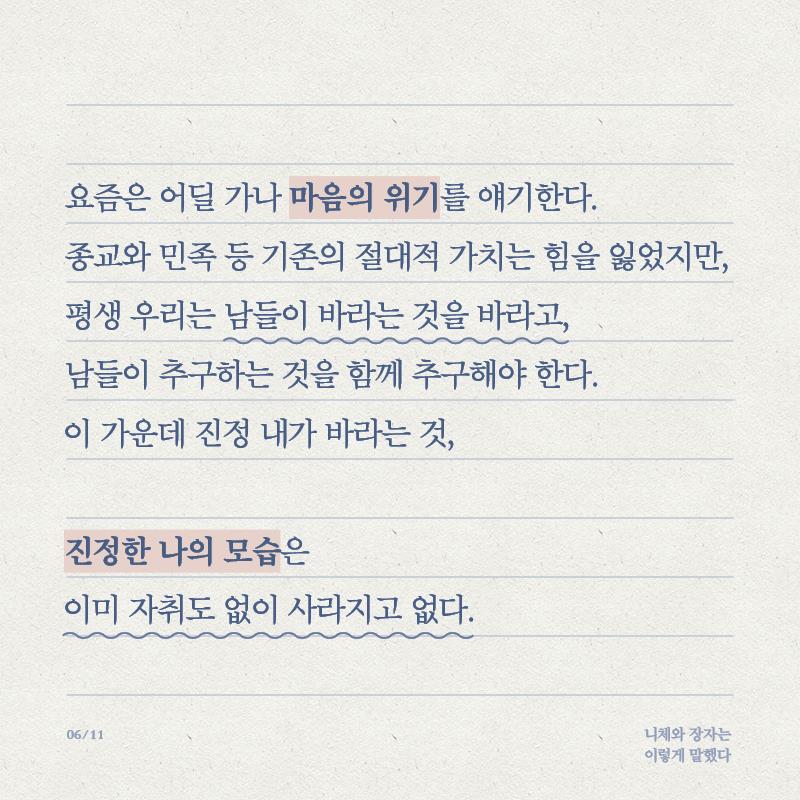 요즘은 어딜 가나 마음의 위기를 얘기한다.
종교와 민족 등 기존의 절대적 가치는 힘을 잃었지만,
평생 우리는 남들이 바라는 것을 바라고,
남들이 추구하는 것을 함께 추구해야 한다.
이 가운데 진정 내가 바라는 것,
진정한 나의 모습은
이미 자취도 없이 사라지고 없다.
06/11
니체와 장자는
이렇게 말했다